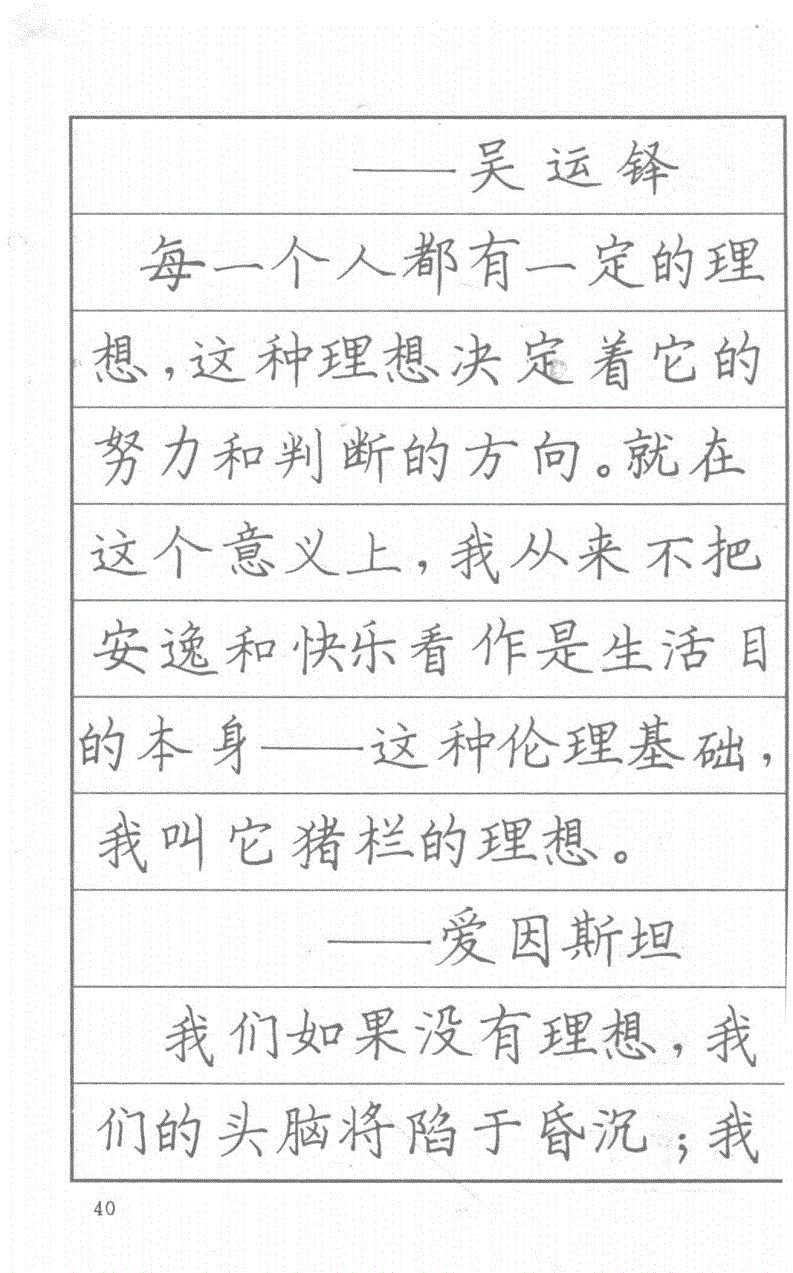 ——吴运铎
每一个人都有一定的理
想,这种理想决定着它的
努力和判断的方向。就在
这个意义上,我从来不把
安逸和快乐看作是生活目
的本身——这种伦理基础,
我叫它猪栏的理想。
——爱因斯坦
我们如果没有理想,我
们的头脑将陷于昏沉;我
40